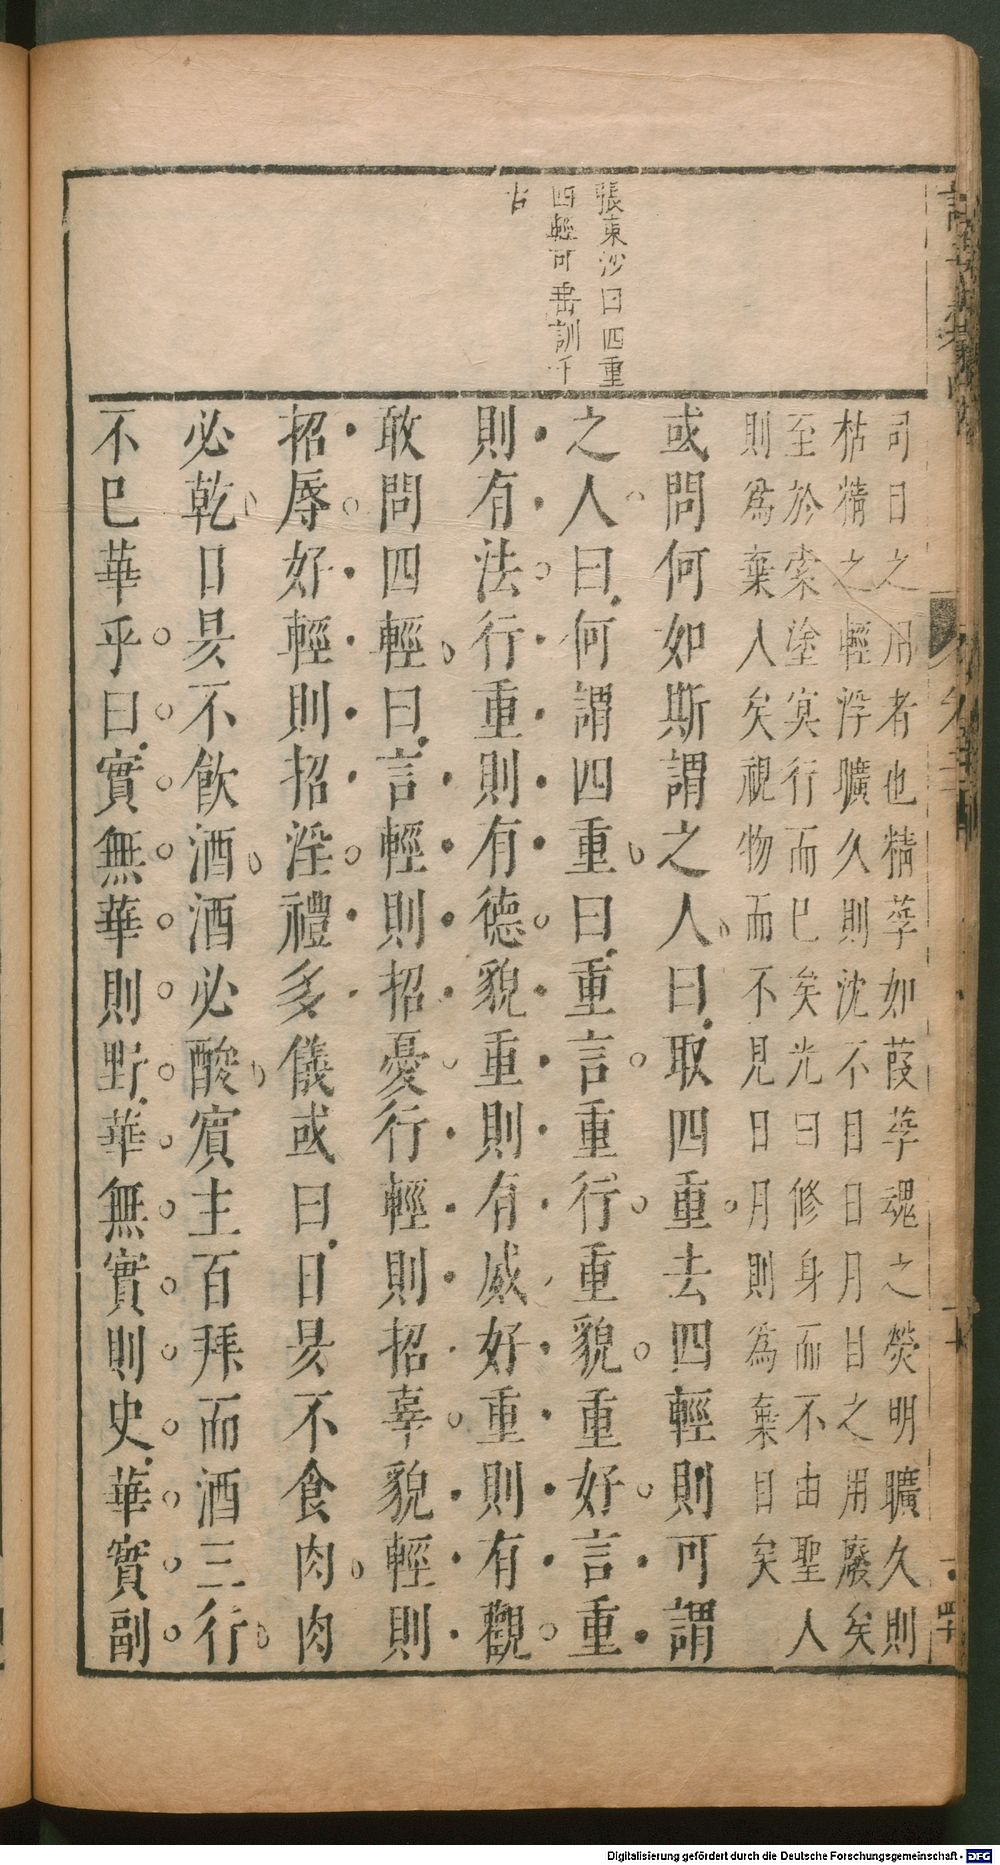 張東沙曰四重
四輕可垂訓千
古
司日之用者也精莩如葭莩魂之熒明曠久則
枯糟之輕浮曠久則沈不目日月目之用廢矣
至於索塗冥行而已矣光曰修身而不由聖人
則爲棄人矣視物而不見日月則爲棄目矣
或問何如斯謂之人曰取四重去四輕則可謂
之人曰何謂四重曰重言重行重貌重好言重
則有法行重則有德貌重則有威好重則有觀
敢問四輕曰言輕則招憂行輕則招辜貌輕則
招辱好輕則招淫禮多儀或曰日昃不食肉肉
必乾日昃不飲酒酒必酸賔主百拜而酒三行
不已華乎曰實無華則野華無實則史華實副
Digitalisierung gefördert durch die Deutsche Forschungsgemeinschaft - DFG